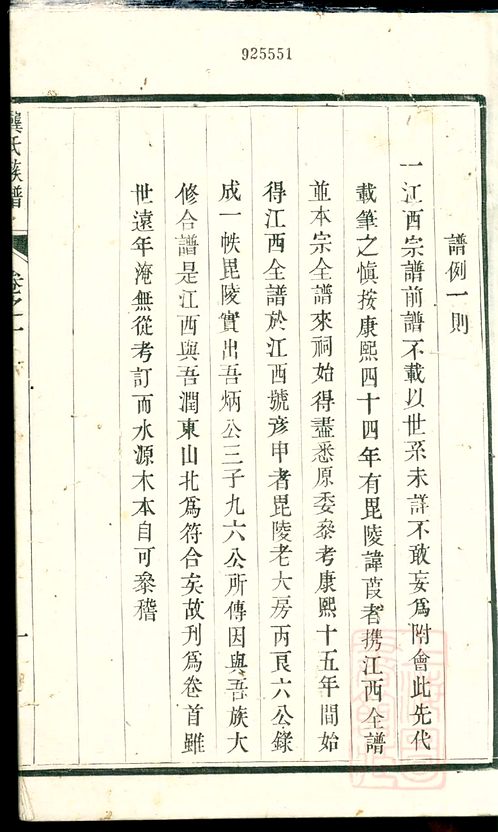 925551
譜例一則
一江西宗譜前譜不載以世系未詳不敢妄爲附會此先代
載筆之慎按康熙四十四年有毘陵諱葭者携江西全譜
並本宗全譜來祠始得盡悉原委叅考康熙十五年間始
得江西全譜於江西號彦申者毘陵老大房丙艮六公錄
成一帙毘陵實出吾炳公三子九六公所傳因與吾族大
修合譜是江西與吾潤東山北爲符合矣故刋爲卷首雖
世遠年淹無從考訂而水源木本自可叅稽
龔氏族譜
卷之一
一